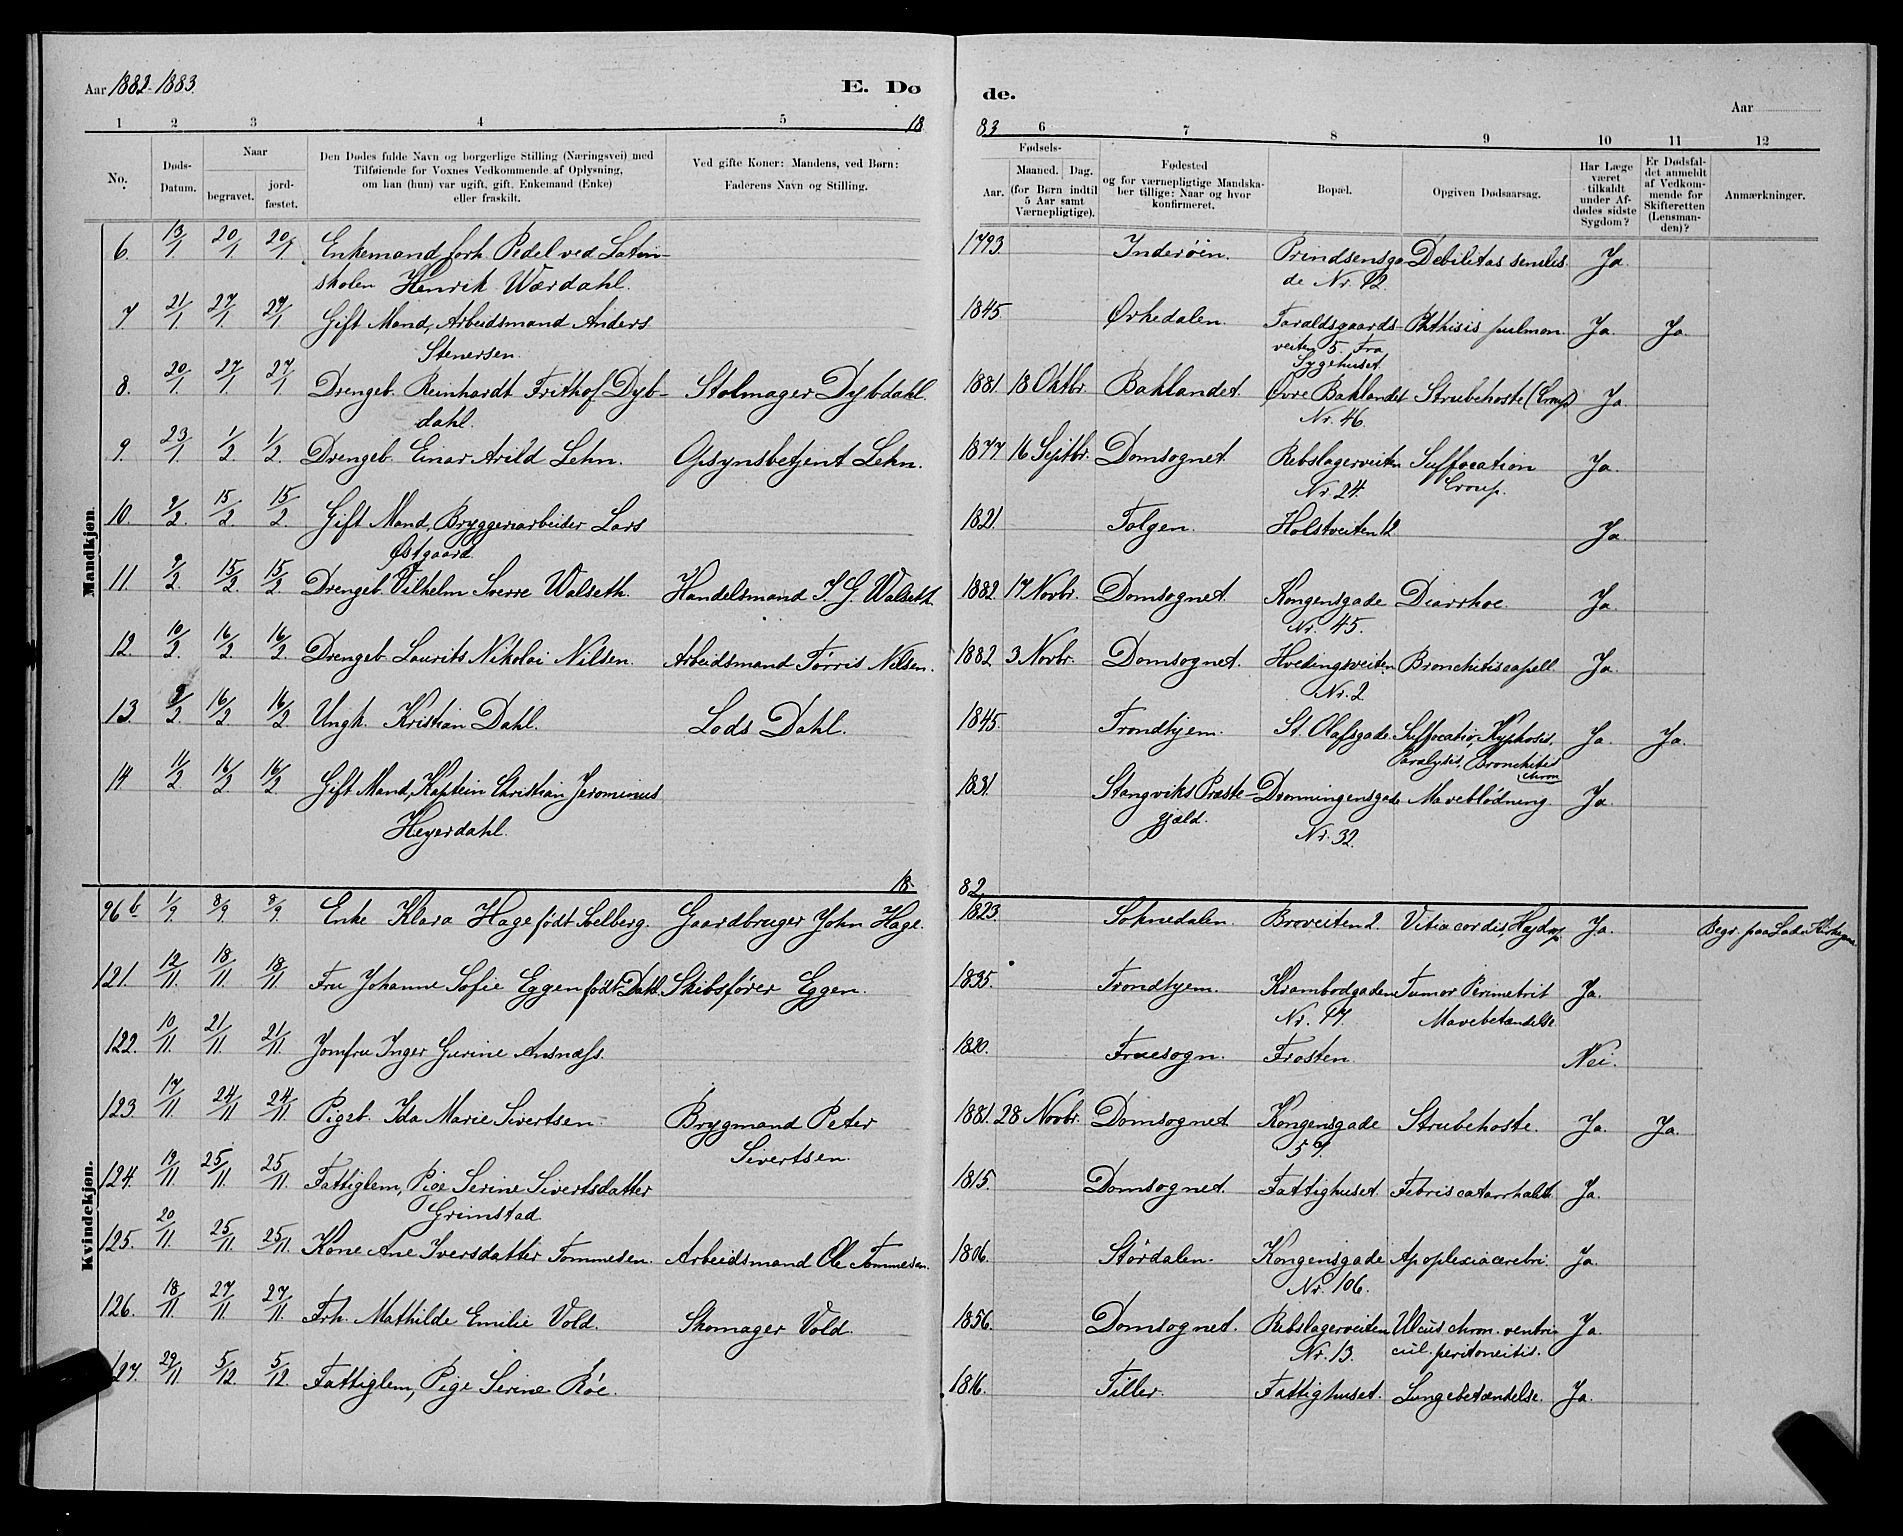 Aar 1882-1883.
E. Dø
de.
Aar
1 2 3 4 5 18
83 6 7 8 9 10 11 12
No.
Døds-
Datum.
Naar
begravet.
jord-
fæstet.
Den Dødes fulde Navn og borgerlige Stilling (Næringsvei) med
Tilføiende for Voxnes Vedkommende af Oplysning,
om han (hun) var ugift, gift, Enkemand (Enke)
eller fraskilt.
Ved gifte Koner: Mandens, ved Børn:
Faderens Navn og Stilling.
Fødsels-
Aar.
Maaned. Dag.
(for Børn indtil
5 Aar samt
Værnepligtige).
Fødested
og for værnepligtige Mandska-
ber tillige: Naar og hvor
konfirmeret.
Bopæl.
Opgiven Dødsaarsag.
Har Læge
været
tilkaldt
under Af-
dødes sidste
Sygdom?
Er Dødsfal-
det anmeldt
af Vedkom-
mende for
Skifteretten
(Lensman-
den)?
Anmærkninger.
Mandkjøn.
6. 13/1 20/1 20/1 Enkemand forh. Pedel ved Latin- 1793. Inderøen. Prindsensga- Debilitas senilis Ja.
skolen Henrik Wærdahl. de Nr. 12.
7 21/1 27/1 27/1 Gift Mand, Arbeidsmand Anders 1845. Ørkedalen. Taraldsgaards- Phthisis pulmon. Ja. Ja
Stenersen. veiten 5. Fra
Sygehuset.
8. 20/1 27/1 27/1 Drengeb. Reinhardt Frithof Dyb- Stolmager Dybdahl. 1881. 18 Oktbr. Baklandet. Øvre Baklandet Strubehoste (Croup) Ja.
dahl. Nr. 46.
9. 23/1 1/2 1/2 Drengeb. Einar Arild Lehn. Opsynsbetjent Lehn. 1877 16 Septbr. Domsognet. Rebslagerveiten Suffocation Ja.
Nr. 24. Croup.
10. 9/2. 15/2 15/2 Gift Mand, Bryggeriarbeider Lars 1821. Tolgen. Holstveiten 12 Ja.
Østgaard.
11. 9/2. 15/2. 15/2 Drengeb. Vilhelm Sverre Walseth. Handelsmand I. G. Walseth. 1882. 17 Novbr. Domsognet. Kongensgade Diarrhoe. Ja.
Nr. 45.
12. 10/2. 16/2 16/2. Drengeb. Laurits Nikolai Nilsen. Arbeidsmand Tørris Nilsen. 1882 3 Novbr. Domsognet. Hvedingsveiten Bronchitis capill. Ja.
Nr. 2
13. 9/2 16/2 16/2 Ungk. Kristian Dahl. Lods Dahl. 1845. Trondhjem. St. Olafsgade. Suffocatio, Kyphosis, Ja. Ja.
Paralysis, Bronchitis
chron
14 11/2. 16/2 16/2. Gift Mand, Kaptein Christian Jerominus 1831. Stangviks Præste- Dronningensgade Maveblödning Ja.
Heyerdahl. gjæld. Nr. 32.
18
82.
Kvindekjøn.
96 b 1/9 8/9 8/9. Enke Klara Hage født Solberg. Gaardbruger John Hage. 1823. Soknedalen. Broveiten 2. Vitia cordis, Hydrop Ja. Begr. paa Lade Kirkegaard
121. 12/11. 18/11 18/11. Fru Johanne Sofie Eggen født Dahl. Skibsfører Eggen. 1835. Trondhjem. Krambodgaden Tumor Perimetrit Ja.
Nr. 17. Mavebetændelse.
122. 10/11. 21/11 21/11. Jomfru Inger Gurine Ansnæs. 1820. Fruesogn. Frosten. Nei.
123 17/11 24/11 24/11 Pigeb. Ida Marie Sivertsen. Brygmand Peter 1881. 28 Novbr. Domsognet Kongensgade Strubehoste. Ja. Ja.
Sivertsen. 57.
124. 19/11 25/11 25/11. Fattiglem, Pige Serine Sivertsdatter 1815. Domsognet. Fattighuset. Febris catarrhalis Ja.
Grimstad
125. 20/11. 25/11 25/11. Kone Ane Iversdatter Tommesen. Arbeidsmand Ole Tommesen. 1806. Størdalen. Kongensgade Apoplexia cerebri. Ja.
Nr. 106.
126. 18/11 27/11. 27/11. Frk. Mathilde Emilie Vold. Skomager Vold. 1856. Domsognet. Rebslagerveiten Ulcus chron. ventri- Ja.
Nr. 13. cul. peritoneitis.
127. 29/11 5/12. 5/12. Fattiglem, Pige Serine Röe. 1816. Tiller. Fattighuset. Lungebetændelse. Ja.